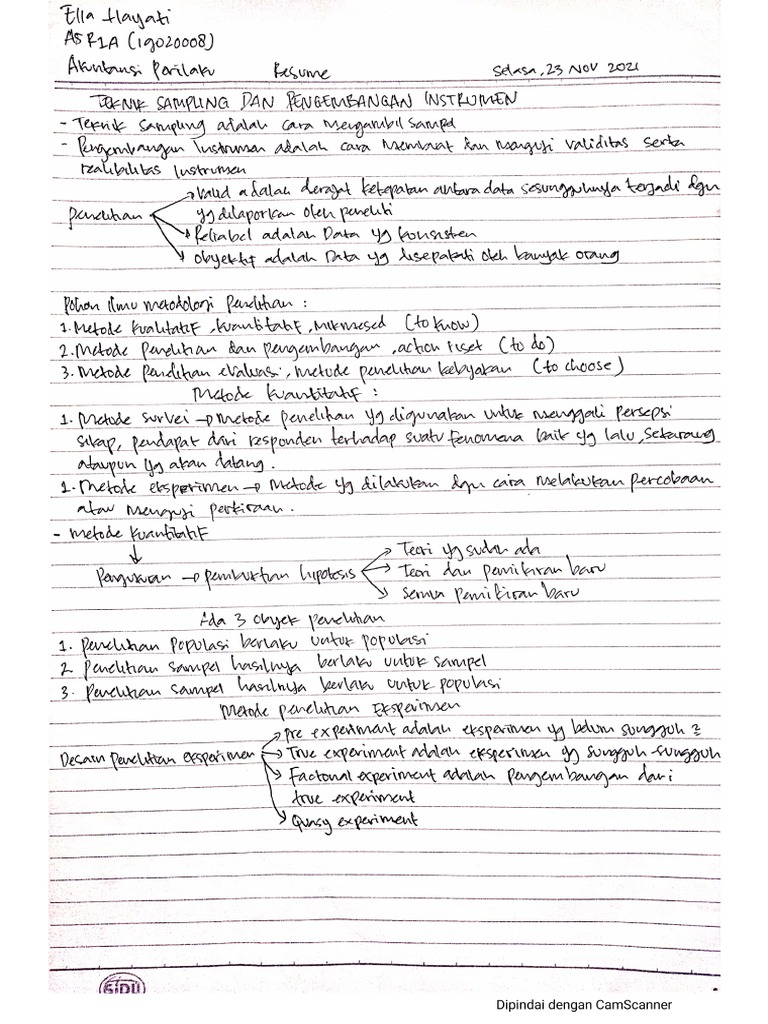 Ella Hayati
ASR1A (19020008)
Akuntansi Perilaku Resume Selasa, 23 Nov 2021
TEKNIK SAMPLING DAN PENGEMBANGAN INSTRUMEN
- Teknik sampling adalah cara mengambil sampel
- Pengembangan Instrumen adalah cara membuat dan menguji validitas serta
realibilitas Instrumen
Penelitian → Valid adalah derajat ketepatan antara data sesungguhnya terjadi dgn
yg dilaporkan oleh peneliti
→ Reliabel adalah Data yg konsisten
→ Obyektif adalah Data yg disepakati oleh banyak orang
Pohon Ilmu metodologi Penelitian :
1. Metode kualitatif, kuantitatif, (to know)
2. Metode penelitian dan pengembangan, action riset (to do)
3. Metode penelitian evaluasi, metode penelitian kebijakan (to choose)
Metode kuantitatif :
1. Metode survei → Metode penelitian yg digunakan untuk menggali persepsi
sikap, pendapat dari responden terhadap suatu fenomena baik yg lalu, sekarang
ataupun yg akan datang.
1. Metode eksperimen → Metode yg dilakukan dgn cara melakukan percobaan
atau menguji perkiraan.
- Metode kuantitatif
↓
Pengukuran → pembuktian hipotesis → Teori yg sudah ada
→ Teori dan pemikiran baru
→ Semua pemikiran baru
Ada 3 obyek penelitian
1. Penelitian populasi berlaku untuk populasi
2. Penelitian sampel hasilnya berlaku untuk sampel
3. Penelitian sampel hasilnya berlaku untuk populasi
Metode penelitian Eksperimen
Desain penelitian eksperimen → Pre experiment adalah eksperimen yg belum sungguh 2
→ True experiment adalah eksperimen yg sungguh-sungguh
→ Factorial experiment adalah pengembangan dari
true experiment
→ Quasy experiment
SIDU
Dipindai dengan CamScanner